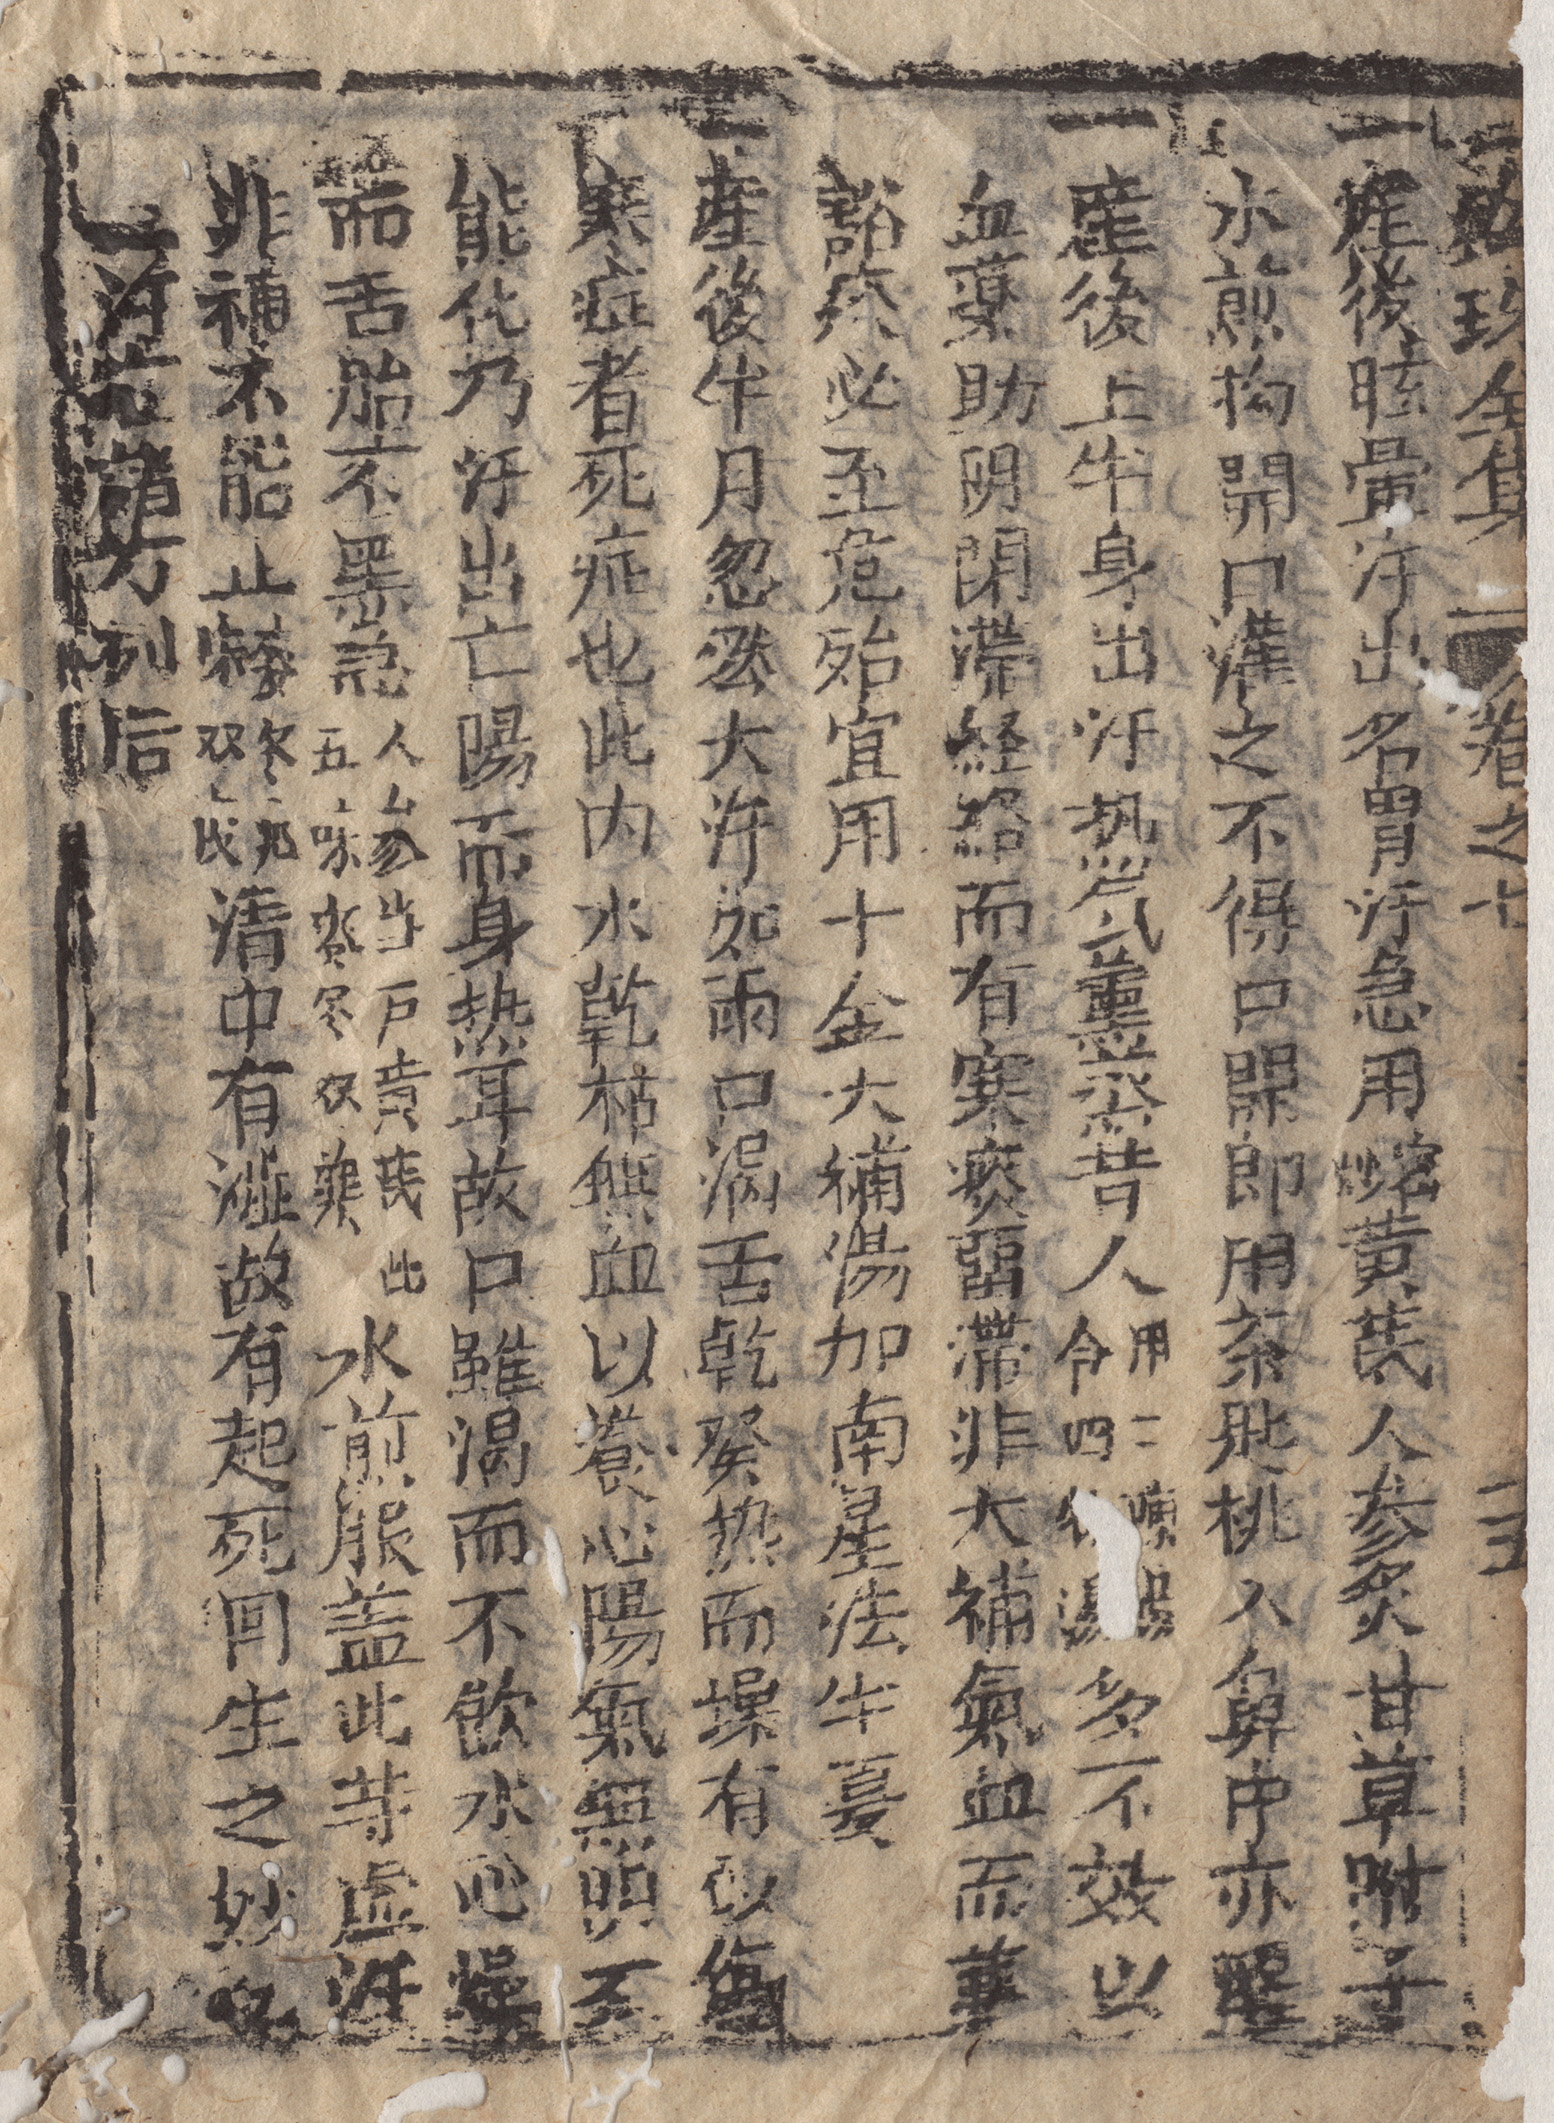 珍全集 卷之七
一產後眩暈汗出名冒汗急用蜜炒黃芪人參炙甘草附子
水煎拘開口灌之不得口開即用茶匙桃入鼻中亦醒
一產後上半身出汗热气薰蒸昔人用二陳湯令四物湯多不效以
血藥助阴閉滯経絡而有寒痰畱滯非大補氣血而兼
豁痰必至危殆宜用十金大補湯加南星法半夏
一產後半月忽然大汗如雨口渴舌乾發热而燥有似傷
寒症者死症也此内水乾枯無血以養心陽氣無阴不
能化乃汗出亡陽而身热耳故口雖渴而不飲水心燥
而舌胎不黑急人參当归黃芪五味麥冬双葉此水煎服盖此等虛汗
非補不能止㗸冬朮双芪清中有澁故有起死囘生之妙
一汗症諸方列后